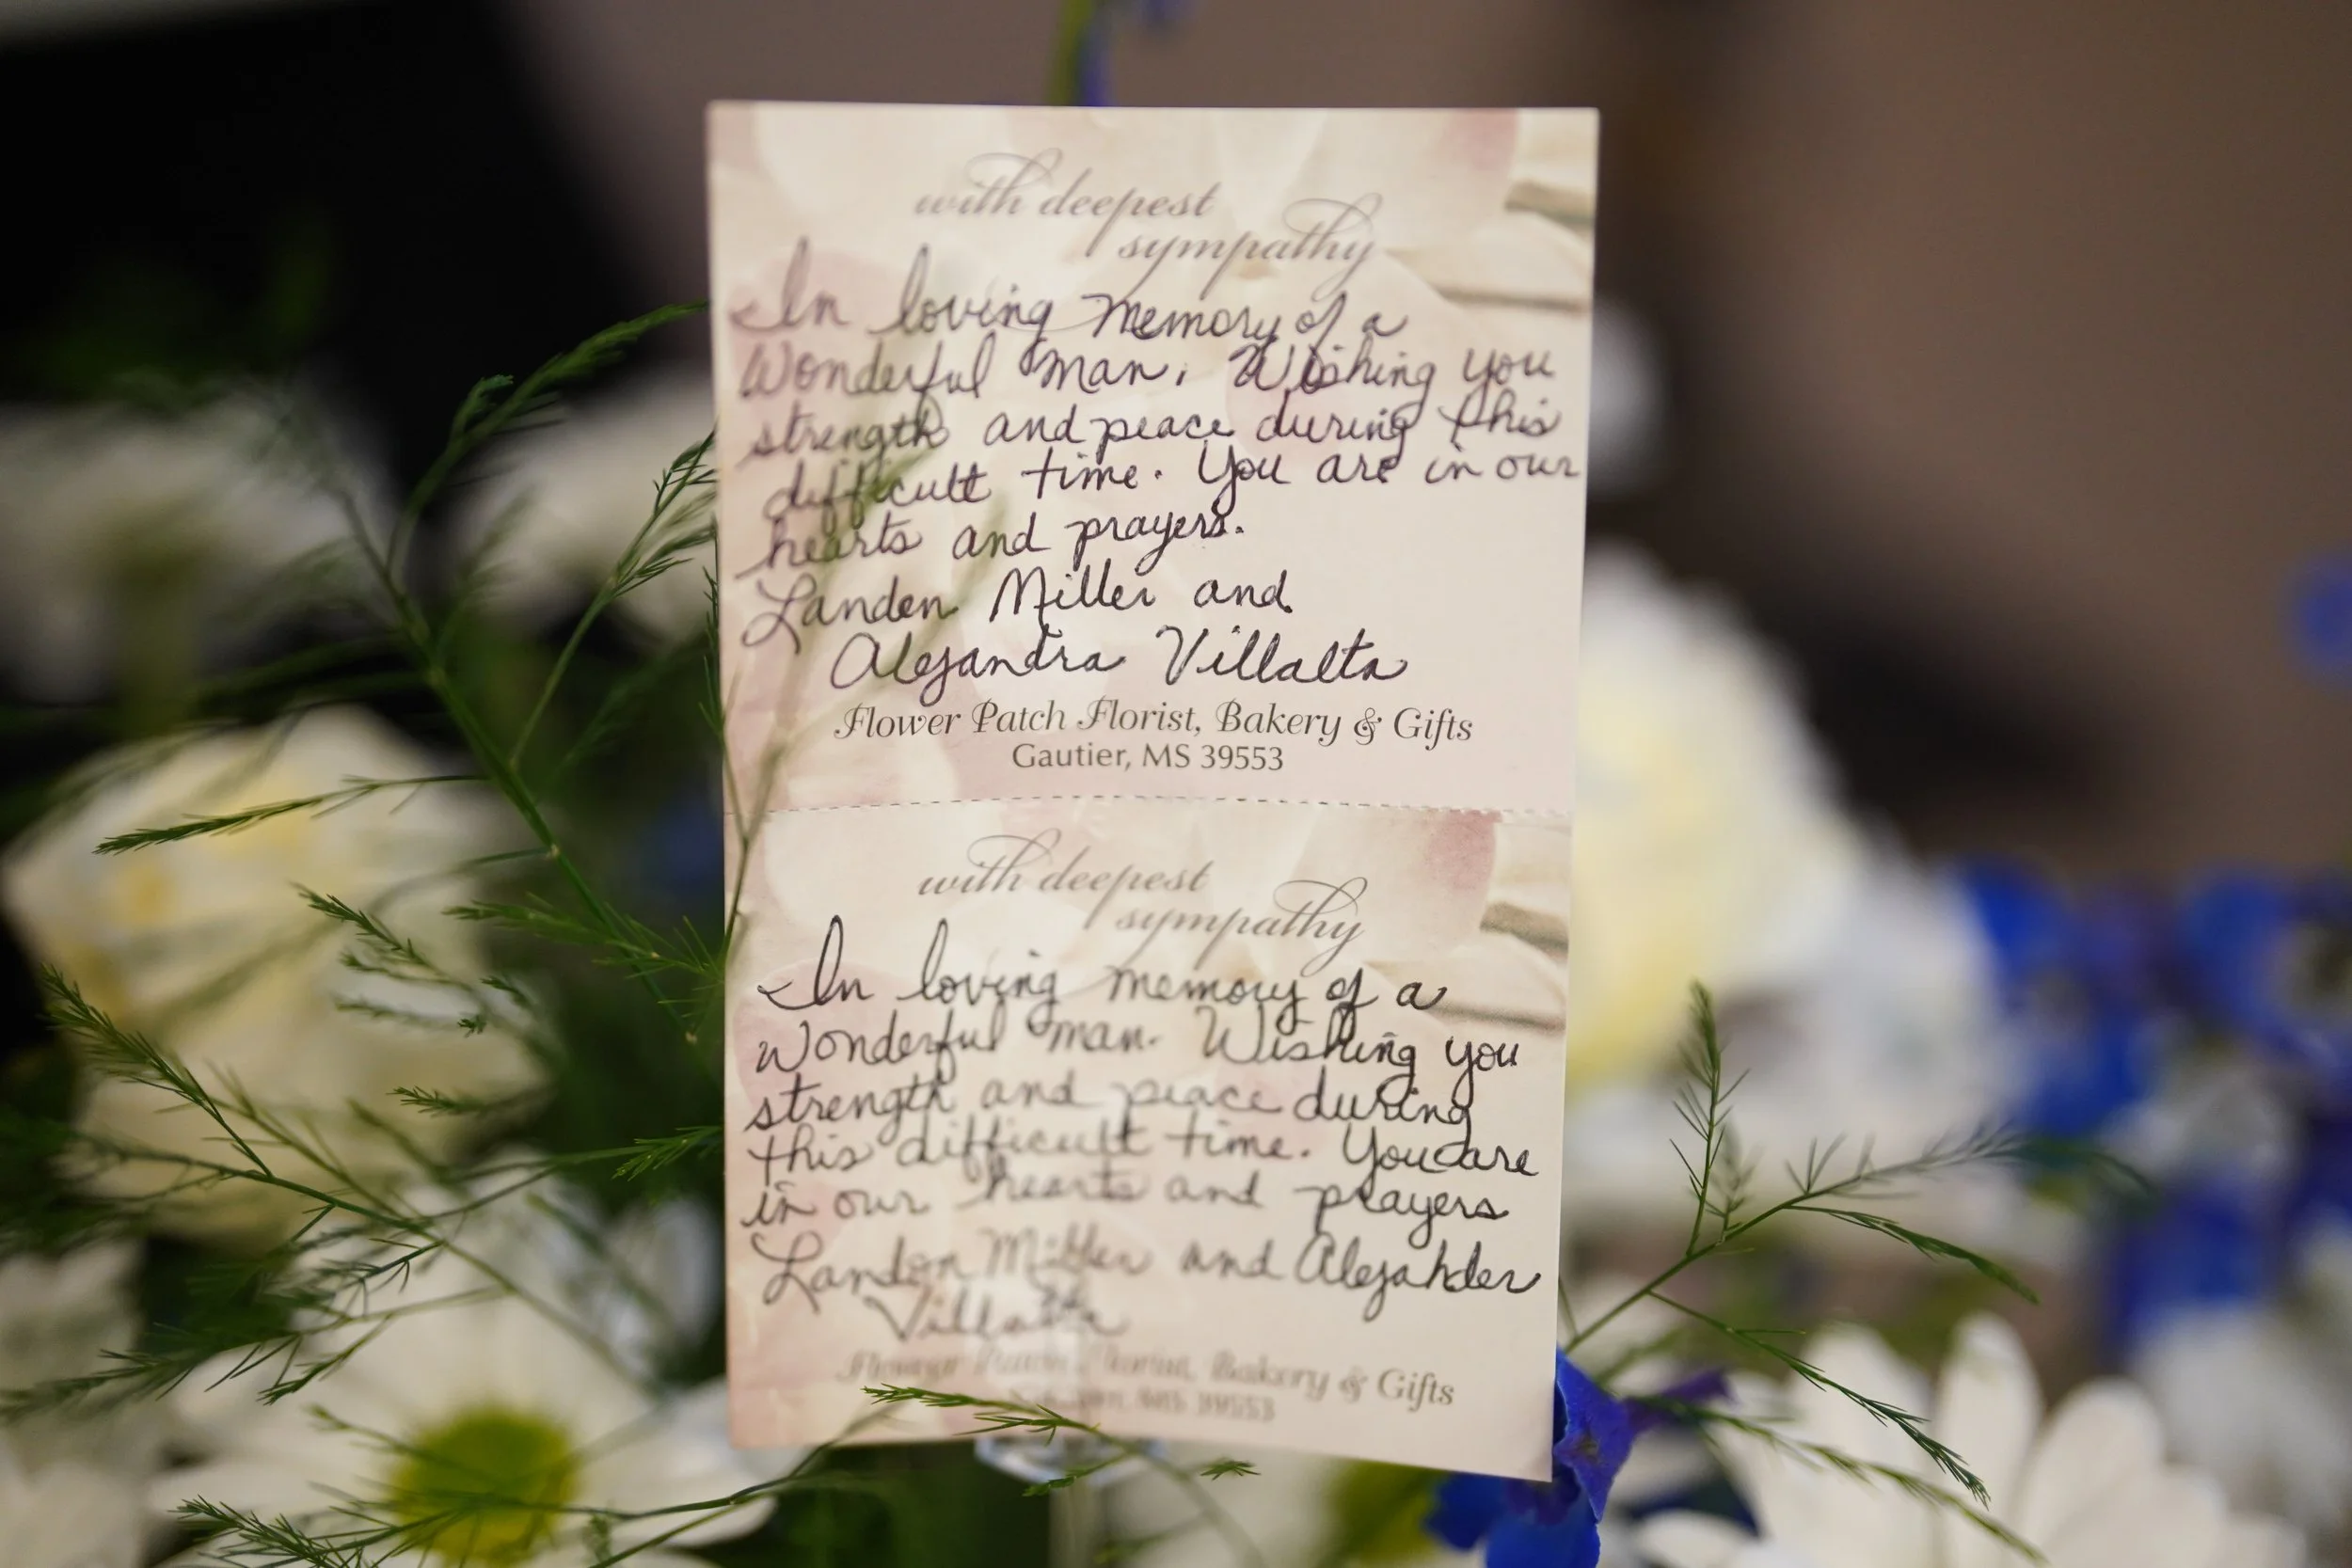 with deepest
sympathy
In loving memory of a
Wonderful man. Wishing you
strength and peace during this
difficult time. You are in our
hearts and prayers.
Landen Miller and
Alejandra Villalta
Flower Patch Florist, Bakery & Gifts
Gautier, MS 39553
with deepest
sympathy
In loving memory of a
Wonderful man. Wishing you
strength and peace during
this difficult time. You are
in our hearts and prayers
Landon Miller and Alejahder
Villalta
Flower Patch Florist, Bakery & Gifts
MS 39553